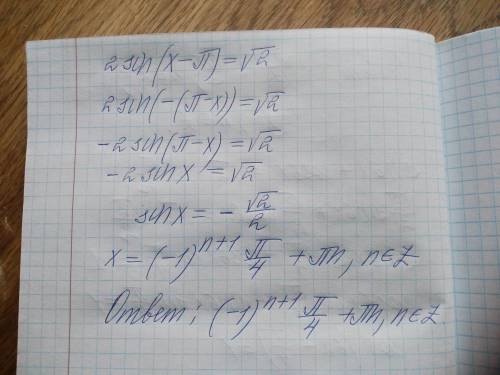 2 sin(x-π)=√2
2 sin(-(π-x))=√2
-2 sin(π-x)=√2
-2 sin x =√2
sin x = - √2/2
x = (-1)^{n+1} π/4 + πn, n∈Z
Ответ: (-1)^{n+1} π/4 + πn, n∈Z.